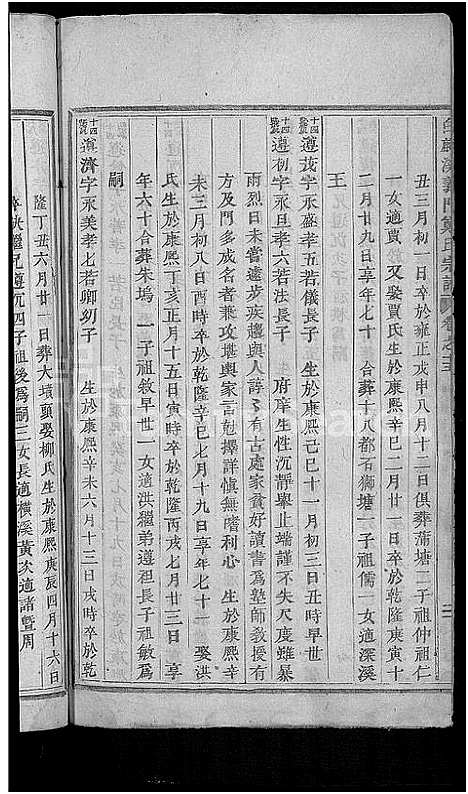 丑三月初一日卒於雍正戊申八月十二日俱葬蒲塘二子祖仲祖仁
一女適賈 又娶賈氏生於康熙辛巳二月廿一日卒於乾隆庚寅十
二月廿九日享年七十 合葬十八都石獅塘一子祖儒一女適深溪
王
十四 遵茂字永盛孝五若儀長子 生於康熙己十一月初三日丑時早世
十四 遵初字永旦孝六若法長子 府庠生性沉靜舉止端謹不失尺度雖暴
雨烈日未嘗遽步疾趨與人訪之有古處家貧好讀書爲塾師敎授有
方及門多成名者兼攻堪輿家言剋擇詳愼無嗜利心 生於康熙辛
未三月初八日酉時卒於乾隆辛巳七月十九日享年七十一 娶洪
氏生於康熙丁亥十二月初五日寅時卒於乾隆丙戌七月廿三日 享
年六十合葬朱塢 一子祖敘早世一女適洪繼弟遵祖長子祖敏爲
嗣
十四 遵濟字永美孝七若卿幼子 生於康熙辛未六月十三日戌時卒於乾
隆丁丑六月廿一日葬大墳頭娶柳氏生於康熙庚辰四月十六日
繼兄遵沉四子祖後爲嗣三女長適橫溪黃次適諸暨周